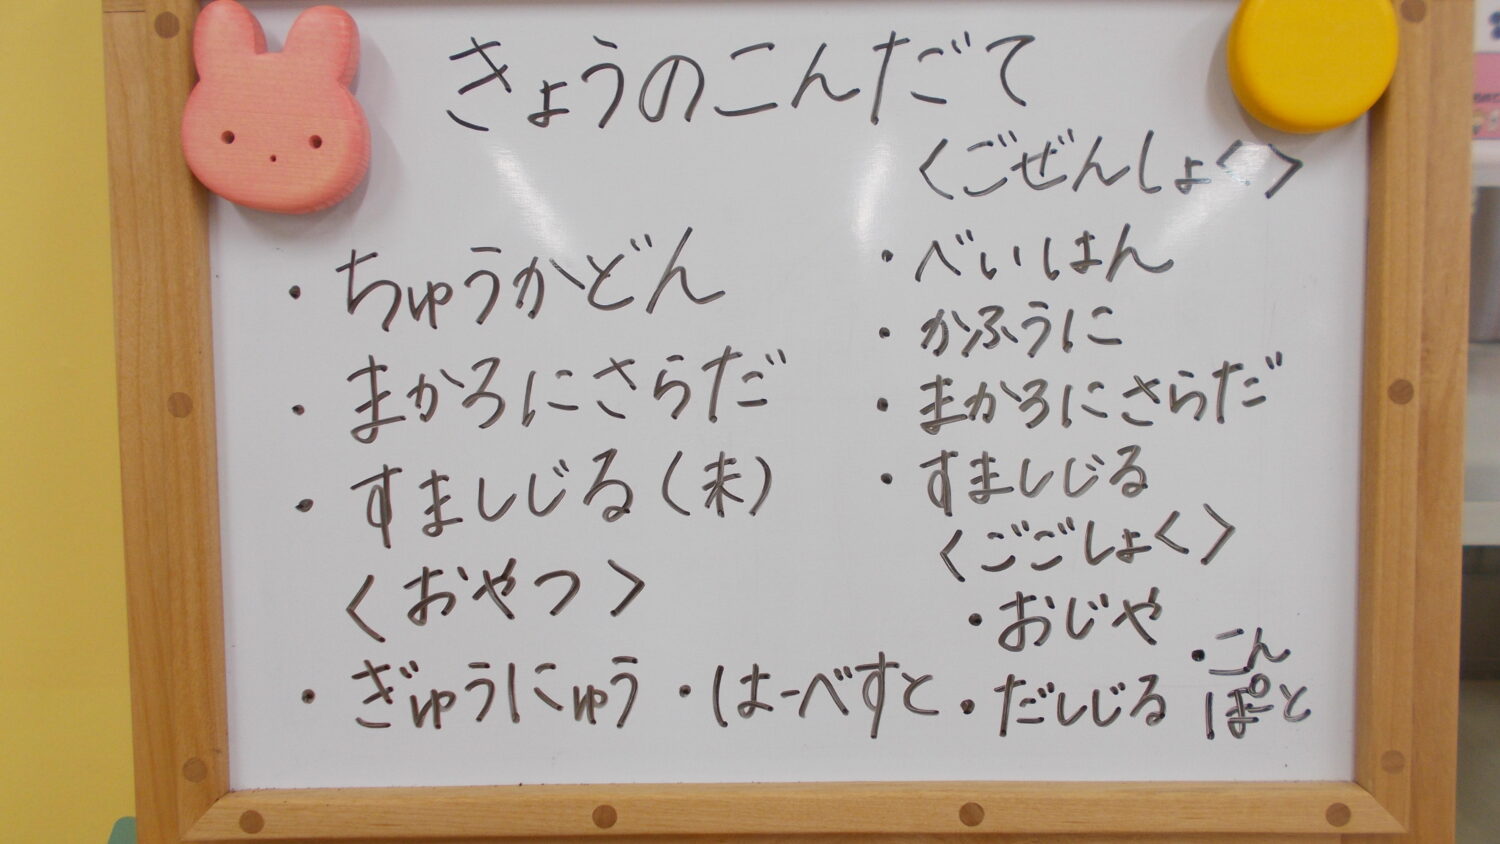 きょうのこんだて
・ちゅうかどん
・まかろにさらだ
・すましじる(未)
〈おやつ〉
・ぎゅうにゅう・はーべすと
〈ごぜんしょく〉
・べいはん
・かふうに
・まかろにさらだ
・すましじる
〈ごごしょく〉
・おじや
・だしじる
・こん
ぽーと